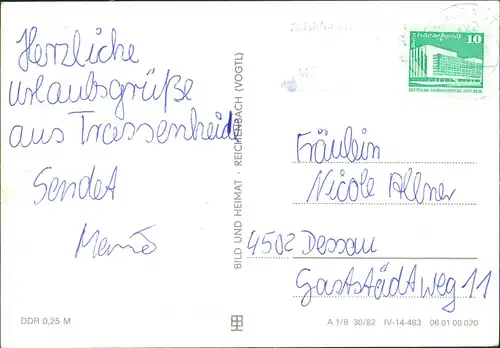 Herzliche
Urlaubsgrüße
aus Trassenheide
Sendet
BILD UND HEIMAT · REICHENBACH (VOGTL)
10
Palast der Republik
DEUTSCHE DEMOKRATISCHE REPUBLIK
Fräulein
Nicole Allner
4502 Dessau
Gaststädtweg 11
DDR 0,25 M
A 1/B 30/82 IV-14-483 06 01 00 020